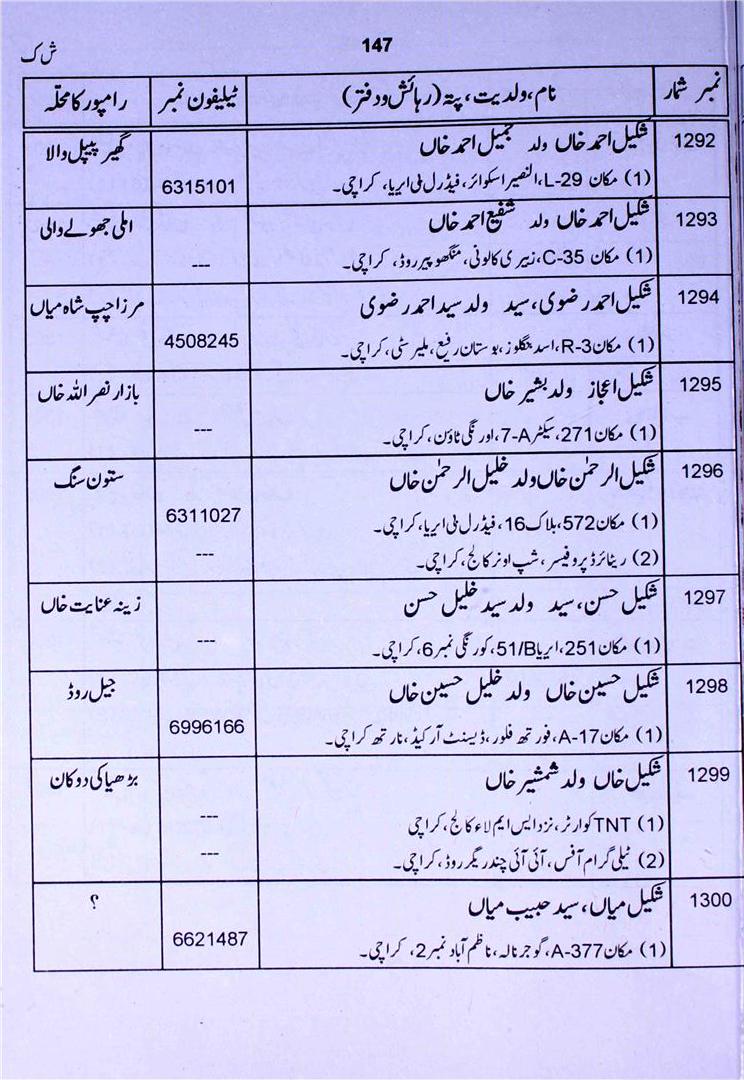 147
ش ک
نمبر شمار	نام، ولدیت، پتہ (رہائش ودفتر)	ٹیلیفون نمبر	رامپور کا محلّہ
1292	شکیل احمد خاں ولد جمیل احمد خاں	گھیر پیپل والا
(1) مکان L-29، النصیر اسکوائر، فیڈرل بی ایریا، کراچی۔	6315101
1293	شکیل احمد خاں ولد شفیع احمد خاں	املی جھولے والی
(1) مکان C-35، زبیری کالونی، منگھو پیر روڈ، کراچی۔	---
1294	شکیل احمد رضوی، سید ولد سید احمد رضوی	مرزا چپ شاہ میاں
(1) مکان R-3، اسد بنگلوز، بوستان رفیع، ملیر سٹی، کراچی۔	4508245
1295	شکیل اعجاز ولد بشیر خاں	بازار نصر اللہ خاں
(1) مکان 271، سیکٹر 7-A، اورنگی ٹاؤن، کراچی۔	---
1296	شکیل الرحمٰن خاں ولد خلیل الرحمٰن خاں	ستون سنگ
(1) مکان 572، بلاک 16، فیڈرل بی ایریا، کراچی۔	6311027
(2) ریٹائرڈ پروفیسر، شپ اونر کالج، کراچی۔	---
1297	شکیل حسن، سید ولد سید خلیل حسن	زینہ عنایت خاں
(1) مکان 251، ایریا 51/B، کورنگی نمبر 6، کراچی۔	---
1298	شکیل حسین خاں ولد خلیل حسین خاں	جیل روڈ
(1) مکان A-17، فورتھ فلور، ڈیسنٹ آرکیڈ، نارتھ کراچی۔	6996166
1299	شکیل خاں ولد شمشیر خاں	بڑھیا کی دوکان
(1) TNT کوارٹر، نزد ایس ایم لاء کالج، کراچی	---
(2) ٹیلی گرام آفس، آئی آئی چندریگر روڈ، کراچی۔	---
1300	شکیل میاں، سید حبیب میاں	؟
(1) مکان A-377، گوجر نالہ، ناظم آباد نمبر 2، کراچی۔	6621487